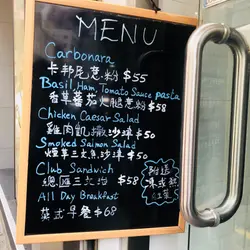 MENU
Carbonara
卡邦尼意粉 $55
Basil Ham Tomato Sauce pasta
香草蕃茄火腿意粉 $58
Chicken Caesar Salad
雞肉凱撒沙律 $50
Smoked Salmon Salad
煙三文魚沙律 $50
Club Sandwich
總匯三文治 $58
All Day Breakfast
英式早餐 $68
附送
凍或熱
紅茶